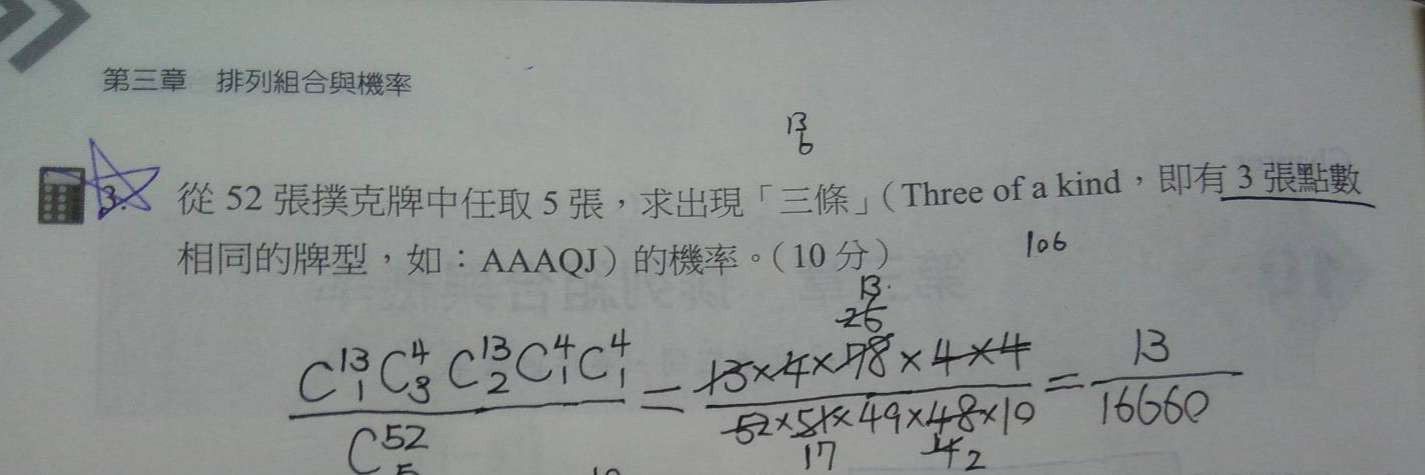 第三章 排列組合與機率
13
6
3. 從 52 張撲克牌中任取 5 張，求出現「三條」（Three of a kind，即有 3 張點數
相同的牌型，如：AAAQJ）的機率。（10 分）
106
13
26
C¹³₁C⁴₃C¹³₂C⁴₁C⁴₁ / C⁵²₅ = 13×4×78×4×4 / 52×51×49×48×10 = 13 / 16660
17 4 2